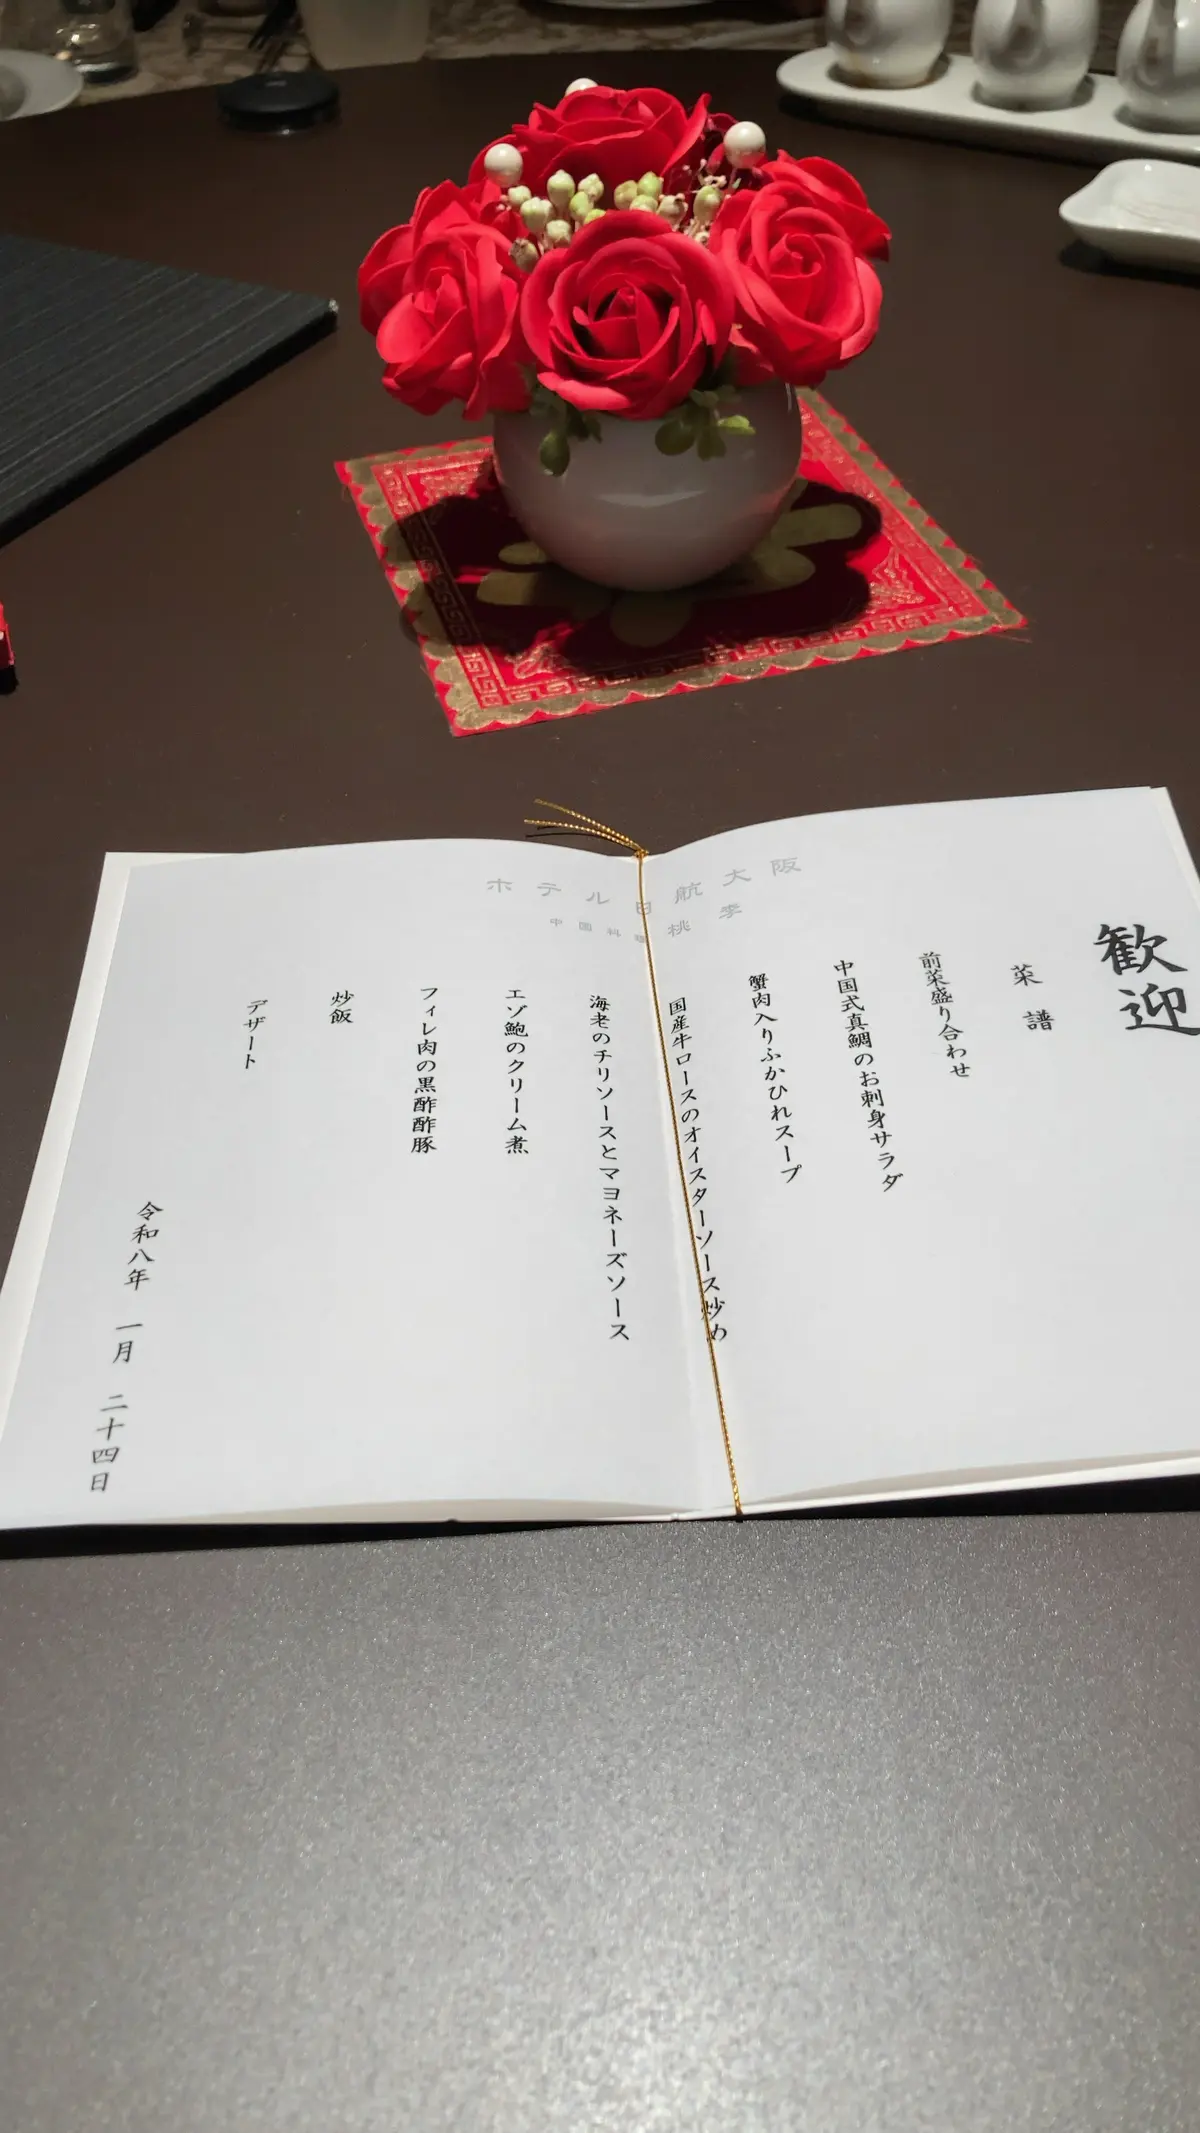 ホテル日航大阪
中国料理 桃李
歓迎
菜譜
前菜盛り合わせ
中国式真鯛のお刺身サラダ
蟹肉入りふかひれスープ
国産牛ロースのオイスターソース炒め
海老のチリソースとマヨネーズソース
エゾ鮑のクリーム煮
フィレ肉の黒酢酢豚
炒飯
デザート
令和八年 一月 二十四日